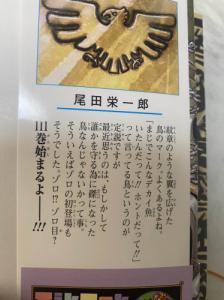 尾田栄一郎
紋章のような翼を広げた
鳥のマーク、よくあるよね。
「まじでこんなデカイ魚
いたんだって!!ホントだって!!」
って言ってる鳥というのが
定説ですが
最近思うのは、もしかして
誰かを守る為に磔になった
鳥なんじゃないかって事。
そういえばゾロの初登場も
そうでした。ゾロ!?ゾロ目?
111巻始まるよ——!!!